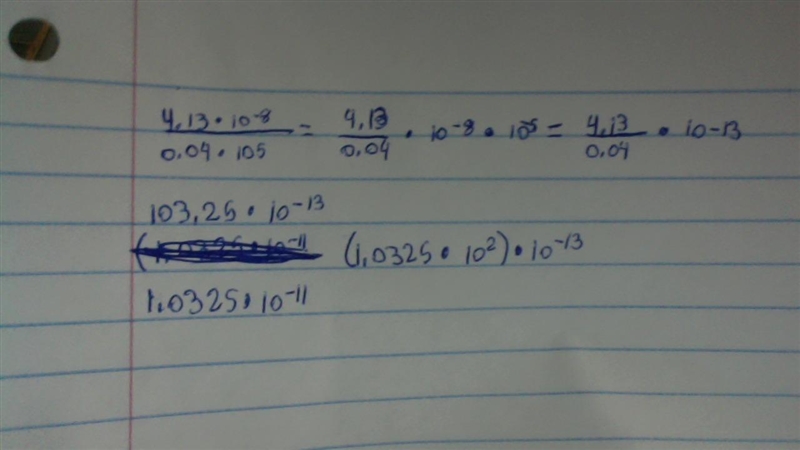 4.13 · 10⁻⁸ / 0.04 · 105 = 4.13 / 0.04 · 10⁻⁸ · 10⁻⁵ = 4.13 / 0.04 · 10-13
103.25 · 10⁻¹³
(1.0325 · 10²) · 10⁻¹³
1.0325 · 10⁻¹¹